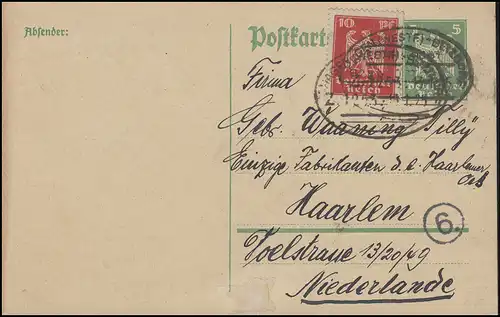 Absender:
Postkarte
5
10
Reich
Firma
Gebr. Waaning Tilly
Einzige Fabrikanten d. e. Haarlemer
Oel
Haarlem
6.
Joelstraue 13/20/49
Niederlande